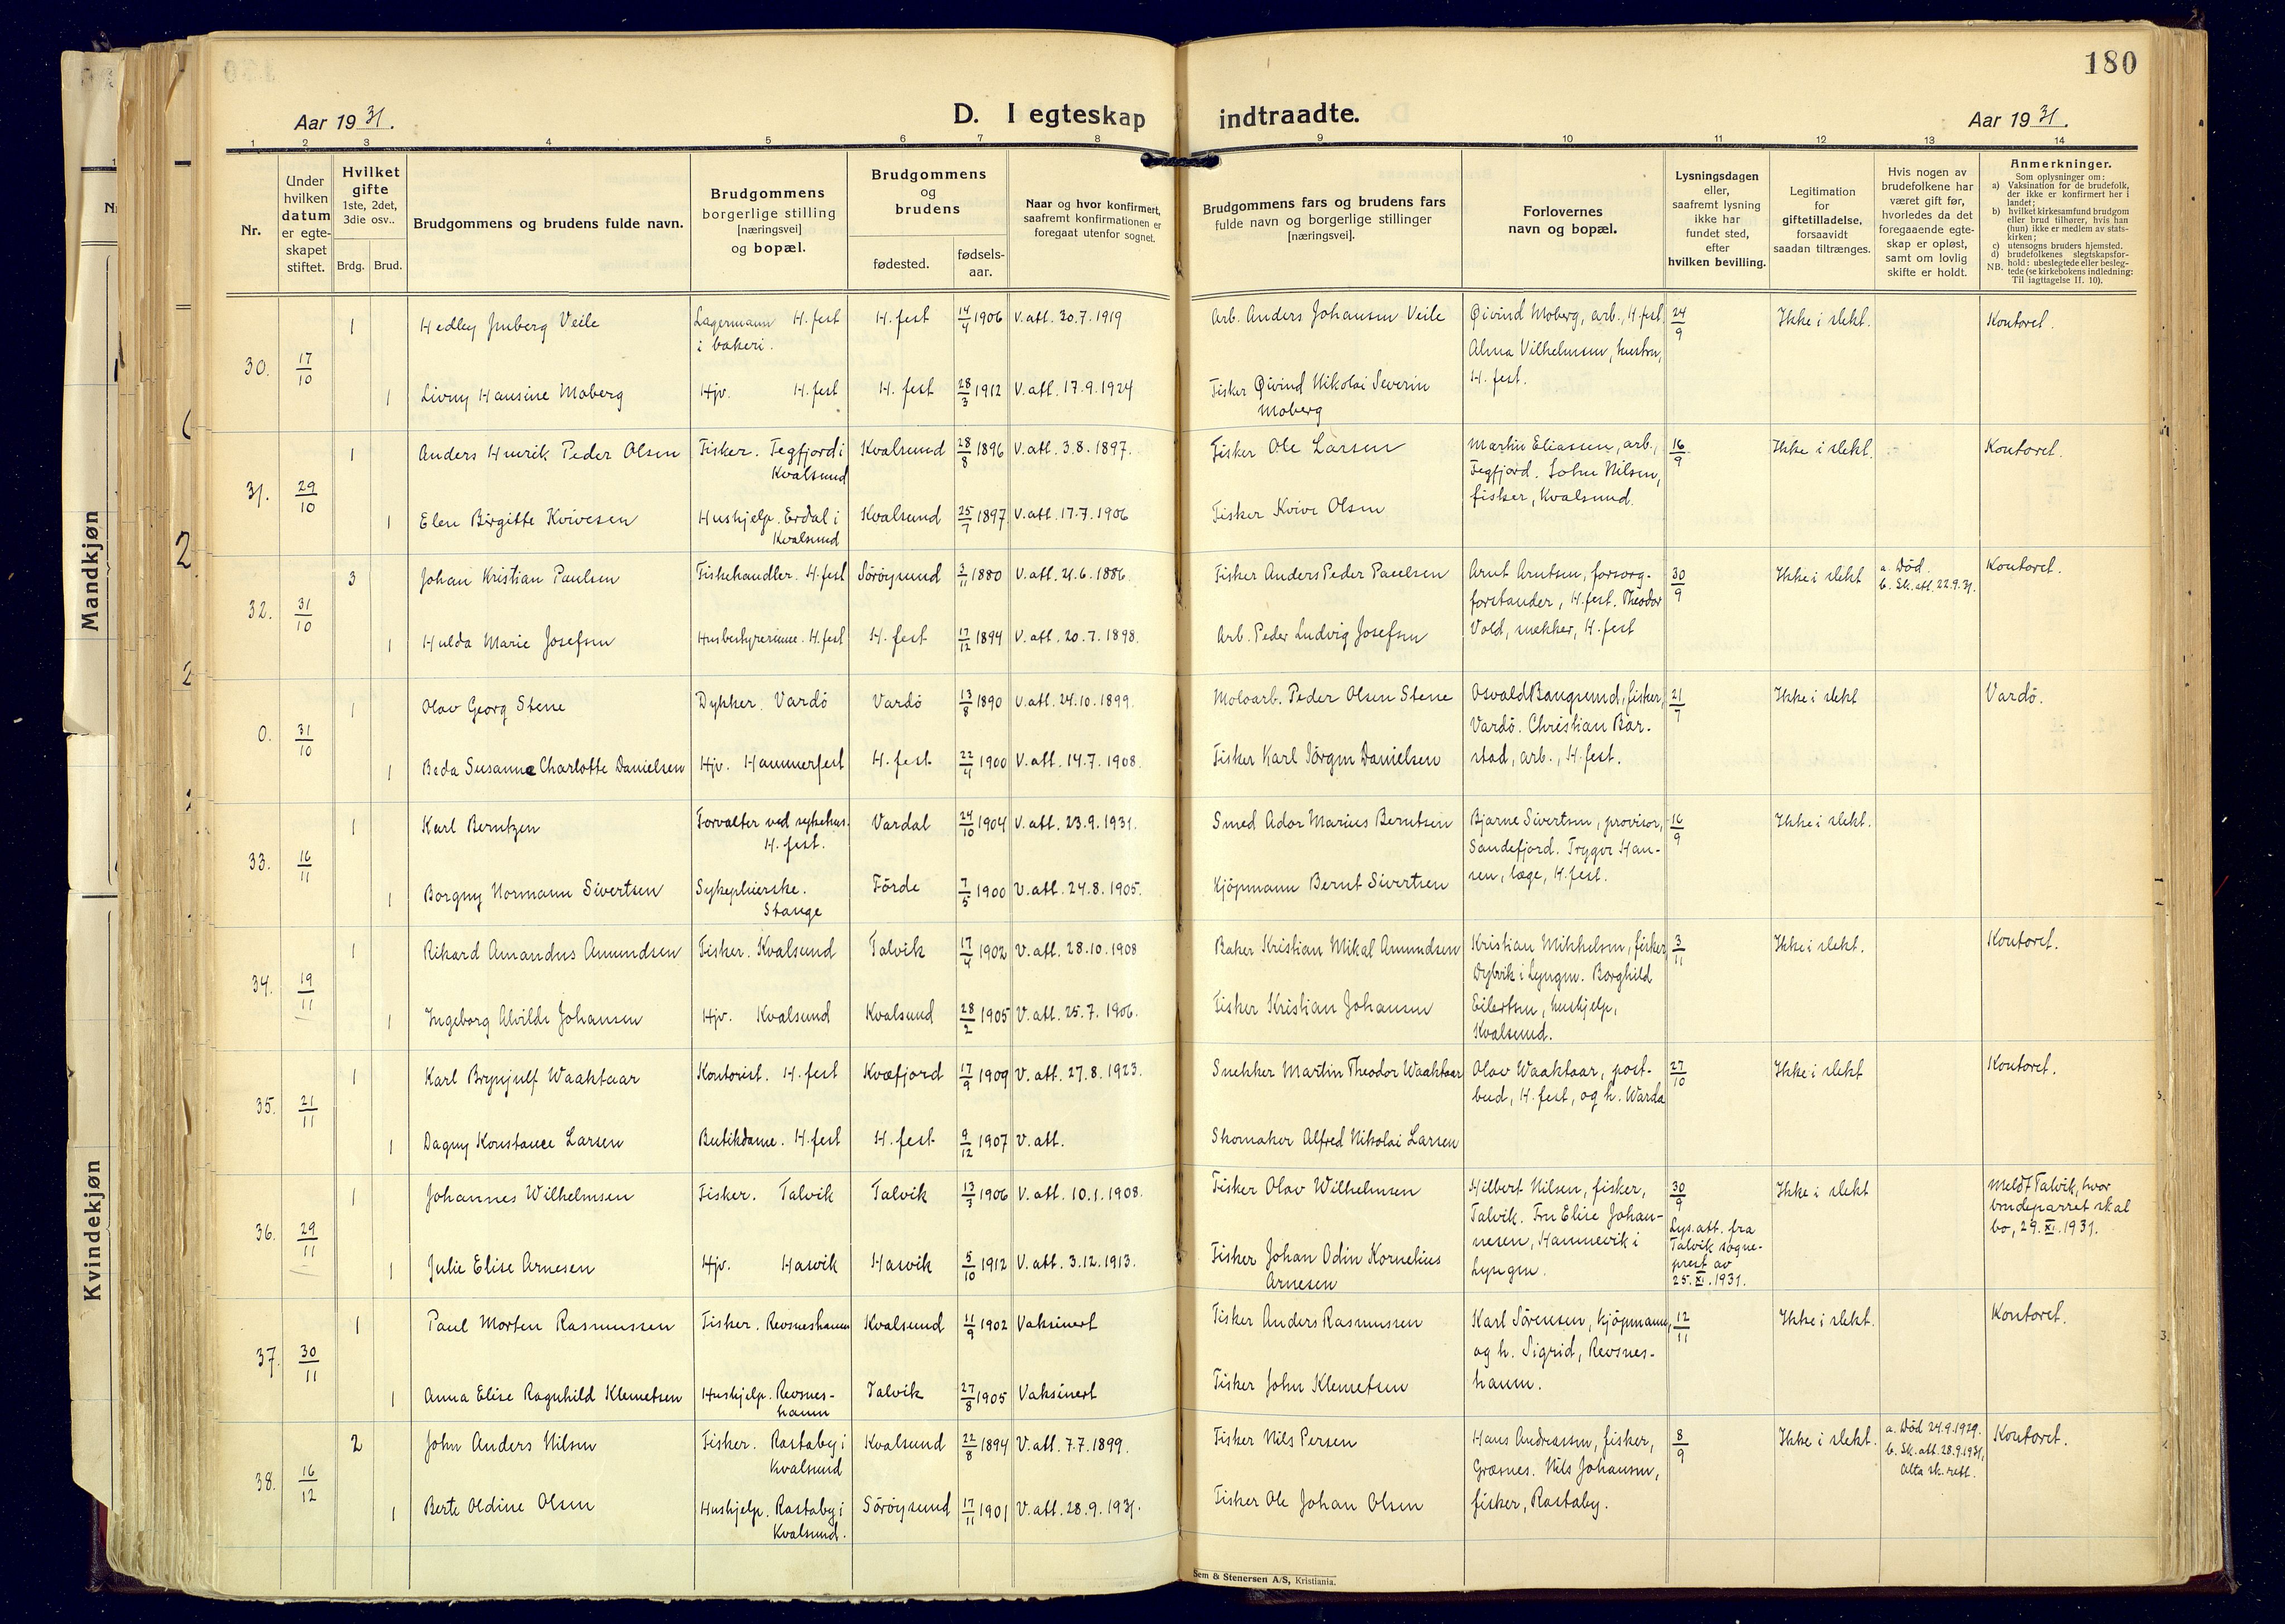 180
Aar 1931.
D. I egteskap indtraadte.
Aar 1931.
1 2 3 4 5 6 7 8 9 10 11 12 13 14
Nr.
Under hvilken datum er egteskapet stiftet.
Hvilket gifte 1ste, 2det, 3die osv..
Brdg. Brud.
Brudgommens og brudens fulde navn.
Brudgommens borgerlige stilling [næringsvei] og bopæl.
Brudgommens og brudens
fødested.
fødselsaar.
Naar og hvor konfirmert, saafremt konfirmationen er foregaat utenfor sognet.
Brudgommens fars og brudens fars fulde navn og borgerlige stillinger [næringsvei].
Forlovernes navn og bopæl.
Lysningsdagen eller, saafremt lysning ikke har fundet sted, efter hvilken bevilling.
Legitimation for giftetilladelse, forsaavidt saadan tiltrænges.
Hvis nogen av brudefolkene har været gift før, hvorledes da det foregaaende egteskap er opløst, samt om lovlig skifte er holdt.
Anmerkninger.
Som oplysninger om:
a) Vaksination for de brudefolk, der ikke er konfirmert her i landet;
b) hvilket kirkesamfund brudgom eller brud tilhører, hvis han (hun) ikke er medlem av statskirken;
c) utensogns bruders hjemsted.
d) brudefolkenes slegtskapsforhold: ubeslegtede eller beslegtede (se kirkebokens indledning: Til iagttagelse II. 10).
NB.
30. 17/10
1 Hedley Junberg Veile Lagermann i bakeri. H.fest H.fest 14/4 1906 V.att. 30.7.1919 Arb. Anders Johansen Veile Øivind Moberg, arb., H.fest, Alma Vilhelmsen, hustru, H.fest. 24/9 Ikke i slekt. Kontoret.
1 Livny Hansine Moberg Hjv. H.fest H.fest 28/3 1912 V.att. 17.9.1924 Fisker Øivind Nikolai Severin Moberg
31. 29/10
1 Anders Henrik Peder Olsen Fisker. Tegfjord i Kvalsund Kvalsund 28/8 1896 V.att. 3.8.1897. Fisker Ole Larsen Martin Eliassen, arb., Tegfjord. John Nilsen, fisker, Kvalsund. 16/9 Ikke i slekt. Kontoret.
1 Elen Birgitte Kvivesen Hushjelp. Erdal i Kvalsund Kvalsund 25/7 1897 V.att. 17.7.1906 Fisker Kvive Olsen
32. 31/10
3 Johan Kristian Paulsen Fiskehandler. H.fest Söröysund 3/11 1880 V.att. 21.6.1886. Fisker Anders Peder Paulsen Arnt Arntsen, forsorgforstander, H.fest. Theodor Vold, snekker, H.fest 30/9 Ikke i slekt a. Död. b. Sk. att. 22.9.31. Kontoret.
1 Hulda Marie Josefsen Husbestyrerinne. H.fest H.fest 17/12 1894 V.att. 20.7.1898. Arb. Peder Ludvig Josefsen
0. 31/10
1 Olav Georg Stene Dykker. Vardö Vardö 13/8 1890 V.att. 24.10.1899. Moloarb. Peder Olsen Stene Osvald Bangsund, fisker, Vardö. Christian Barstad, arb., H.fest. 21/7 Ikke i slekt Vardö.
1 Beda Susanne Charlotte Danielsen Hjv. Hammerfest H.fest 22/4 1900 V.att. 14.7.1908. Fisker Karl Jörgen Danielsen
33. 16/11
1 Karl Berntzen Forvalter ved sykehus. H.fest. Vardal 24/10 1904 V.att. 23.9.1931. Smed Ador Marius Berntsen Bjarne Sivertsen, provisor, Sandefjord. Trygve Hansen, læge, H.fest. 16/9 Ikke i slekt.
1 Borgny Normann Sivertsen Sykepleierske. Stange Förde 7/5 1900 V.att. 24.8.1905. Kjöpmann Bernt Sivertsen
34. 19/11
1 Rikard Amandus Amundsen Fisker. Kvalsund Talvik 17/4 1902 V.att. 28.10.1908 Baker Kristian Mikal Amundsen Kristian Mikkelsen, fisker, Dybvik i Lyngen. Borghild Eilertsen, hushjelp, Kvalsund. 3/11 Ikke i slekt. Kontoret.
1 Ingeborg Alvilde Johansen Hjv. Kvalsund Kvalsund 28/2 1905 V.att. 25.7.1906. Fisker Kristian Johansen
35. 21/11
1 Karl Brynjulf Waaktaar Kontorist. H.fest Kvæfjord 17/9 1909 V.att. 27.8.1923. Snekker Martin Theodor Waaktaar Olav Waaktaar, postbud, H.fest, og h. Warda 27/10 Ikke i slekt Kontoret.
1 Dagny Konstance Larsen Butikdame. H.fest H.fest 9/12 1907 V.att. Skomaker Alfred Nikolai Larsen
36. 29/11
1 Johannes Wilhelmsen Fisker. Talvik Talvik 13/3 1906 V.att. 10.1.1908. Fisker Olav Wilhelmsen Hilbert Nilsen, fisker, Talvik. Fru Elise Johannesen, Hamnevik i Lyngen. 30/9 Lys.att. fra Talvik sogneprest av 25.XI.1931. Ikke i slekt Meldt Talvik, hvor brudeparret skal bo, 29.XI.1931.
1 Julie Elise Arnesen Hjv. Hasvik Hasvik 5/10 1912 V.att. 3.12.1913. Fisker Johan Odin Kornelius Arnesen
37. 30/11
1 Paul Morten Rasmussen Fisker. Revsneshamn Kvalsund 11/9 1902 Vaksinert Fisker Anders Rasmussen Karl Sörensen, kjöpmann, og h. Sigrid, Revsneshamn. 12/11 Ikke i slekt. Kontoret.
1 Anna Elise Ragnhild Klemetsen Hushjelp. Revsneshamn Talvik 27/8 1905 Vaksinert Fisker John Klemetsen
38. 16/12
2 John Anders Nilsen Fisker. Rastaby i Kvalsund Kvalsund 22/8 1894 V.att. 7.7.1899. Fisker Nils Persen Hans Andreassen, fisker, Græsnes. Nils Johansen, fisker, Rastaby. 8/9 Ikke i slekt. a. Död 24.9.1929. b. Sk. att. 28.9.1931, Alta sk.rett. Kontoret.
1 Berte Oldine Olsen Hushjelp. Rastaby i Kvalsund. Söröysund 17/11 1901 V.att. 28.9.1931. Fisker Ole Johan Olsen
Mandkjøn
Kvindekjøn
Sem & Stenersen A/S, Kristiania.